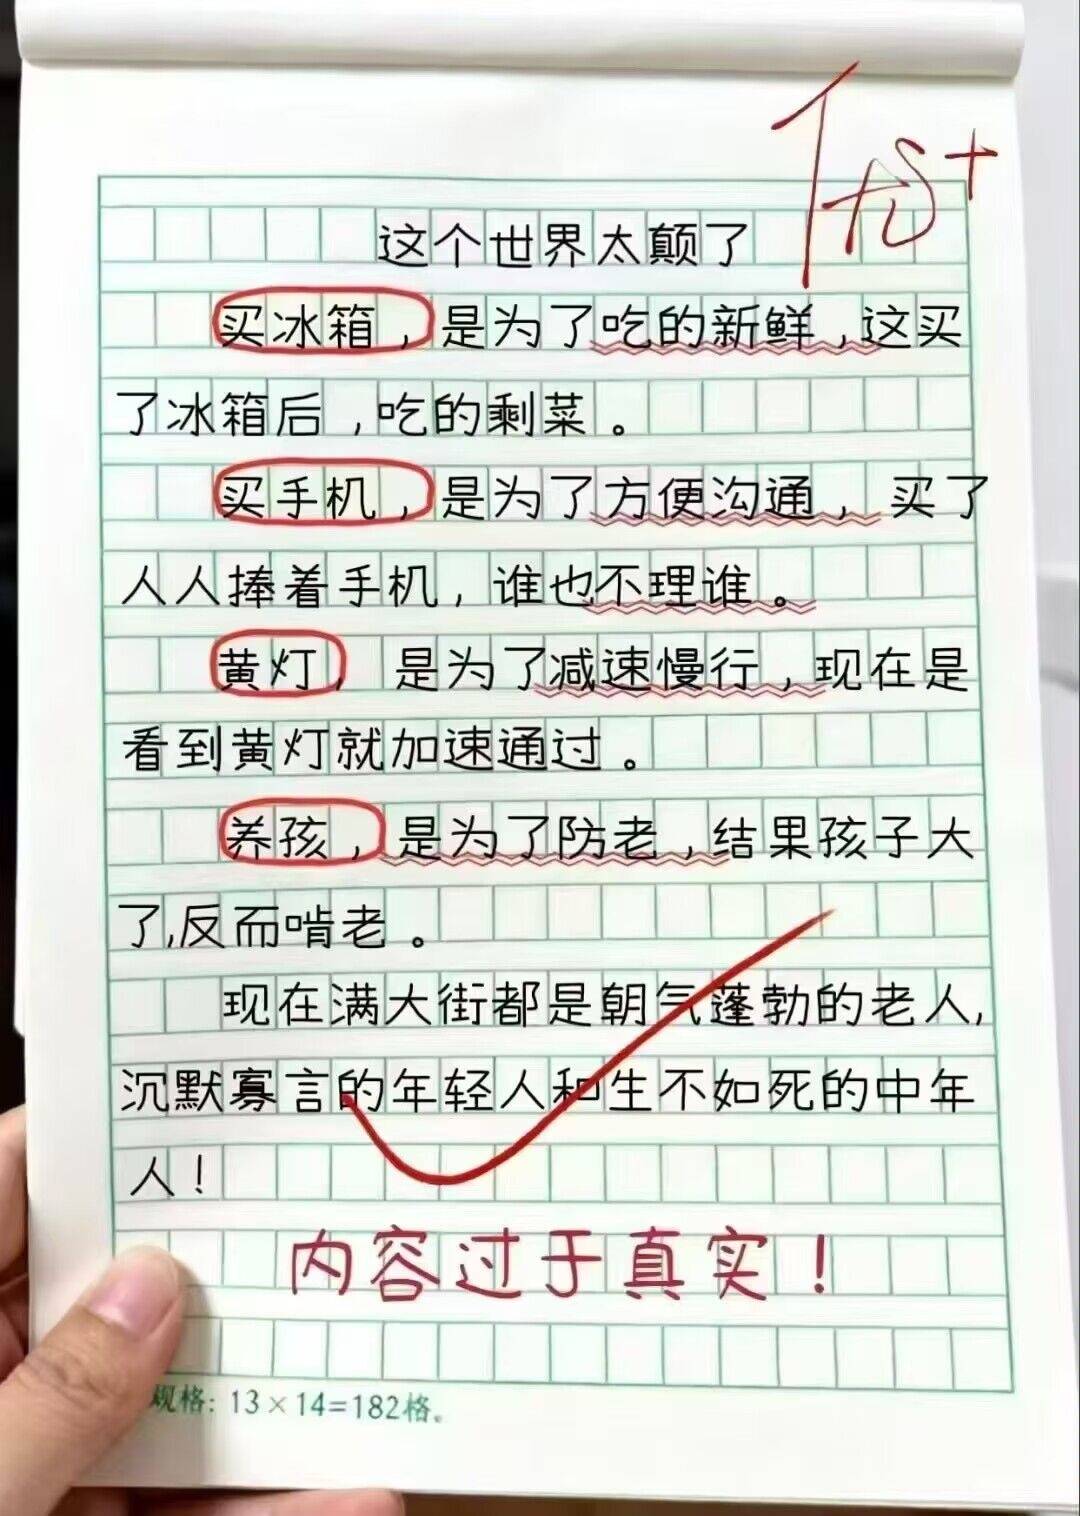 这个世界太颠了
买冰箱，是为了吃的新鲜，这买
了冰箱后，吃的剩菜。
买手机，是为了方便沟通，买了
人人捧着手机，谁也不理谁。
黄灯，是为了减速慢行，现在是
看到黄灯就加速通过。
养孩，是为了防老，结果孩子大
了,反而啃老。
现在满大街都是朝气蓬勃的老人,
沉默寡言的年轻人和生不如死的中年
人！
内容过于真实！
规格: 13×14=182格。